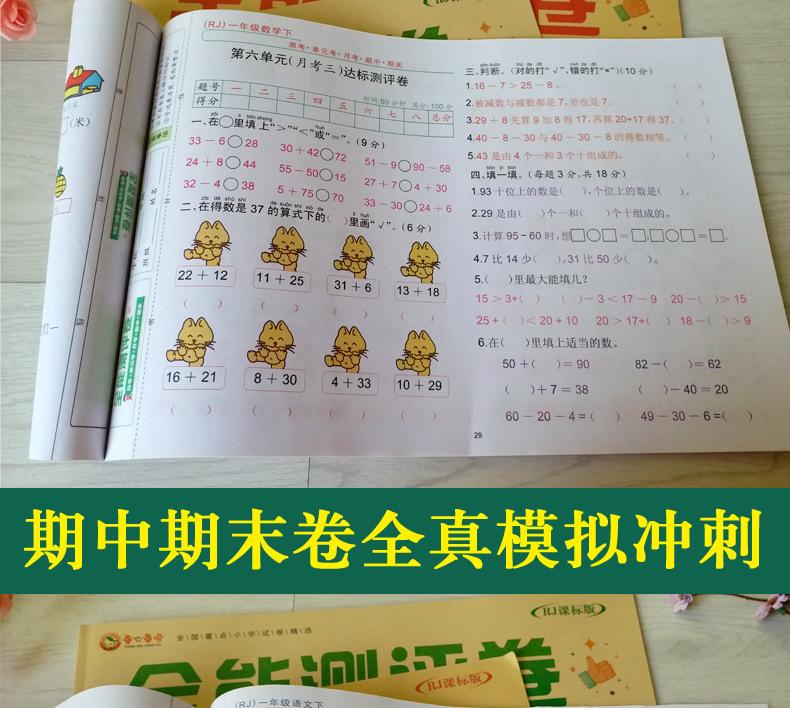 (RJ)一年级数学下
周考·单元考·月考·期中·期末
第六单元(月考三)达标测评卷
题号 一 二 三 四 五 六 七 八 总分
得分
时间:60分钟 满分:100分
一、在○里填上“>”“<”或“=”。(9分)
33-6○28 30+42○72 51-9○90-58
24+8○44 55-50○15 27+7○4+30
32-4○38 5+75○70 33-30○24+6
二、在得数是37的算式下的( )里画“√”。(6分)
22+12 11+25 31+6 13+18
( ) ( ) ( ) ( )
16+21 8+30 4+33 10+29
( ) ( ) ( ) ( )
三、判断。(对的打“√”,错的打“×”)(10分)
1.16-7>25-8。 ( )
2.被减数与减数都是7,差也是7。 ( )
3.29+8先算9加8得17,再算20+17得37。 ( )
4.40-8-30与40-30-8的得数相等。 ( )
5.43是由4个一和3个十组成的。 ( )
四、填一填。(每题3分,共18分)
1.93十位上的数是( ),个位上的数是( )。
2.29是由( )个一和( )个十组成的。
3.计算95-60时,想□○□=□,□○□=□。
4.7比14少( ),31比50少( )。
5.( )里最大能填几?
15>3+( ) ( )-3<17-9 20-( )>15
25+( )<20+10 20>17+( ) 18-( )>9
6.在( )里填上适当的数。
50+( )=90 82-( )=62
( )+7=38 ( )-40=20
60-20-4=( ) 49-30-6=( )
29
□(米)
姓名
班级
期中期末卷全真模拟冲刺
全国重点小学试卷精选
RJ课标版
全能测评卷
RJ课标版
(RJ)一年级语文下